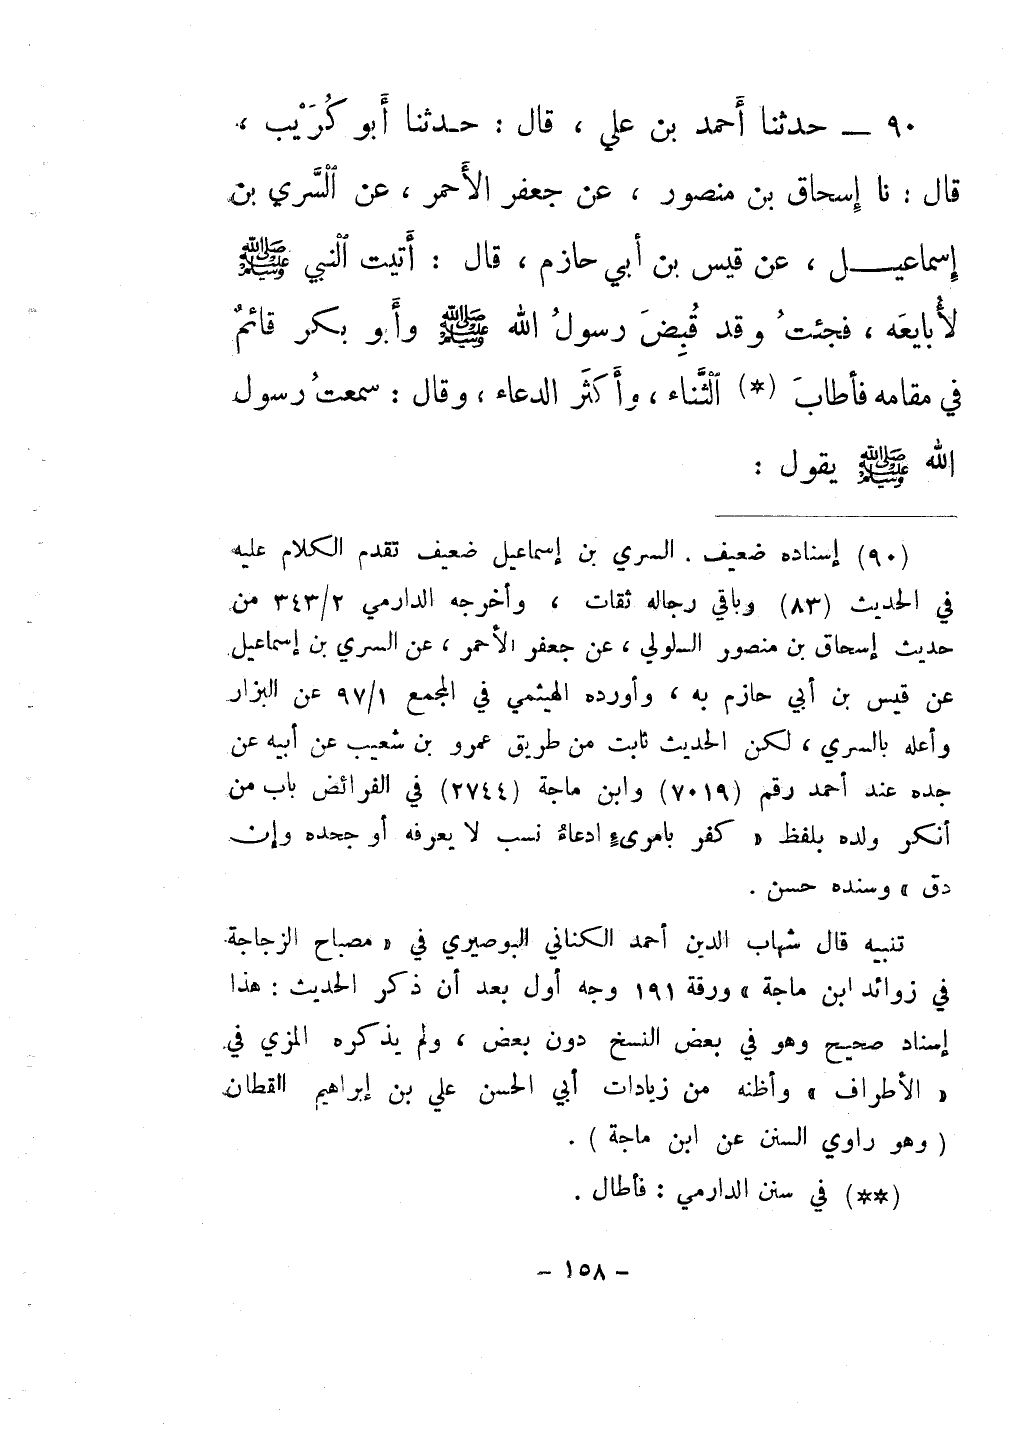 ٩٠ — حدثنا أَحمد بن علي ، قال : حـدثنا أَبو كُرَيْب ،
قال : نا إِسحاق بن منصور ، عن جعفر الأَحمر ، عن ٱلسَّري بن
إِسماعيــــل ، عن قيس بن أَبي حازم ، قال : أَتيت ٱلنبي ﷺ
لأُبايعَه ، فجئتُ وقد قُبِضَ رسولُ الله ﷺ وأَبو بكر قائمٌ
في مقامه فأطابَ (*) ٱلثَّناء ، وأَكثَر الدعاء ، وقال : سمعتُ رسول
الله ﷺ يقول :
(٩٠) إسناده ضعيف . السري بن إسماعيل ضعيف تقدم الكلام عليه
في الحديث (٨٣) وباقي رجاله ثقات ، وأخرجه الدارمي ٣٤٣/٢ من
حديث إسحاق بن منصور السلولي ، عن جعفر الأحمر ، عن السري بن إسماعيل
عن قيس بن أبي حازم به ، وأورده الهيثمي في المجمع ٩٧/١ عن البزار
وأعله بالسري ، لكن الحديث ثابت من طريق عمرو بن شعيب عن أبيه عن
جده عند أحمد رقم (٧٠١٩) وابن ماجة (٢٧٤٤) في الفرائض باب من
أنكر ولده بلفظ « كفر بامرىء ادعاءُ نسب لا يعرفه أو جحده وإن
دق » وسنده حسن .
تنبيه قال شهاب الدين أحمد الكناني البوصيري في « مصباح الزجاجة
في زوائد ابن ماجة » ورقة ١٩١ وجه أول بعد أن ذكر الحديث : هذا
إسناد صحيح وهو في بعض النسخ دون بعض ، ولم يذكره المزي في
« الأطراف » وأظنه من زيادات أبي الحسن علي بن إبراهيم القطان
( وهو راوي السنن عن ابن ماجة ) .
(**) في سنن الدارمي : فأطال .
- ١٥٨ -